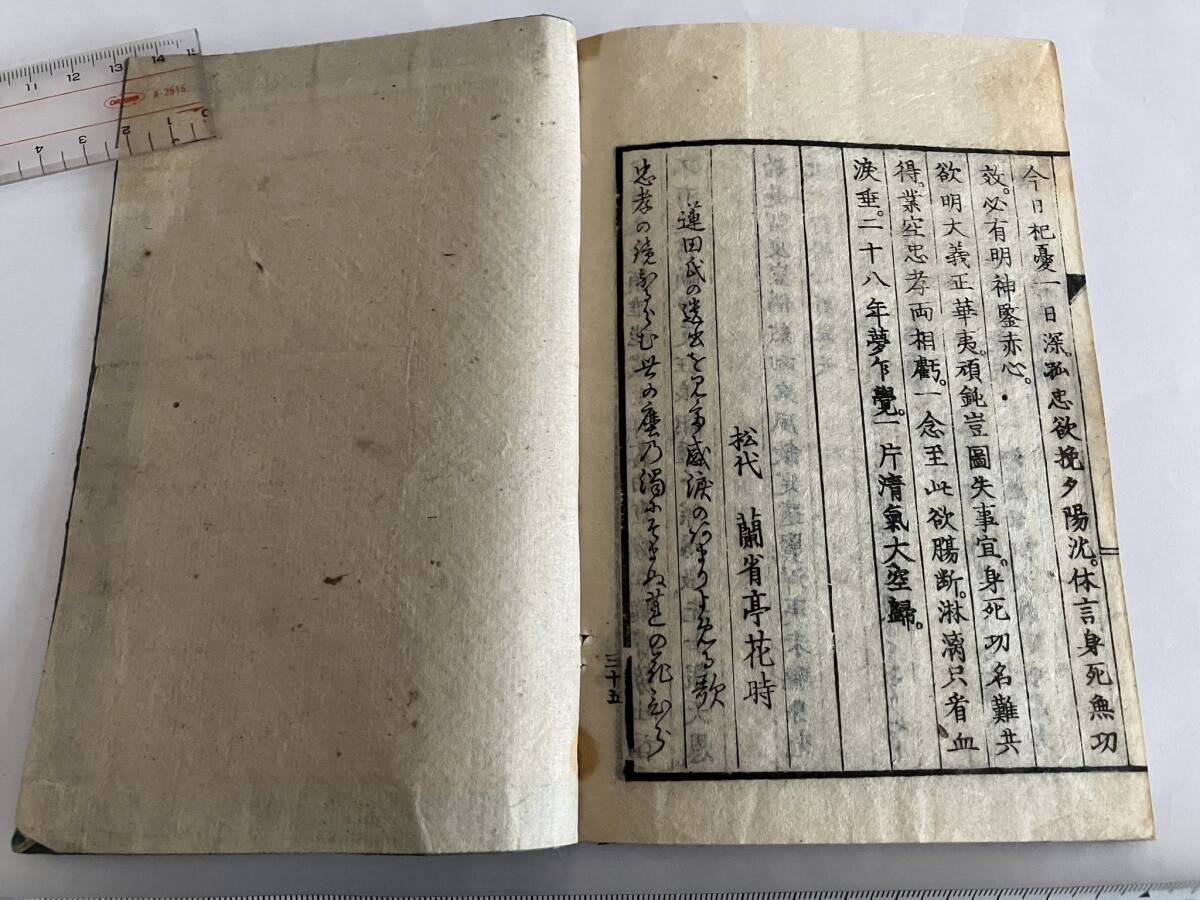 今日杞憂一日深。孤忠欲挽夕陽沈。休言身死無功
效。必有明神鑒赤心。
欲明大義正華夷。頑鈍豈圖失事宜。身死功名難共
得。業空忠孝両相虧。一念至此欲腸断。淋漓只看血
淚垂。二十八年夢乍覺。一片清氣大空歸。
松代 蘭省亭花時
蓮田氏の遺出を見て感淚のあまりよめる歌
忠孝の鏡ならむ世の塵の濁にそまぬ蓮の花
三十五
11 12 13 14 15
4 3 2 1
A 2515